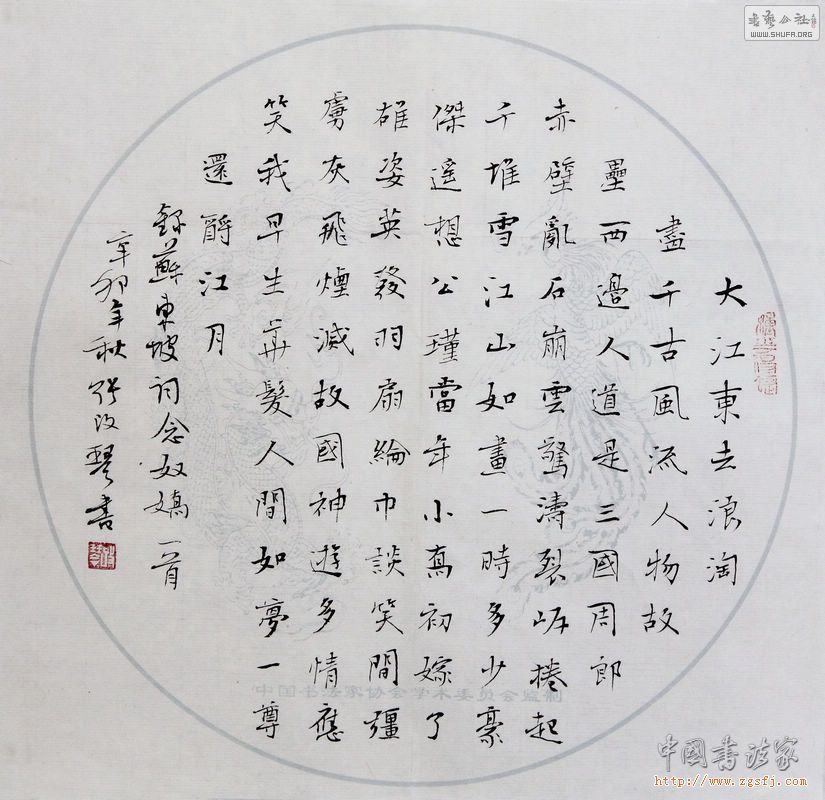 大江東去浪淘
盡千古風流人物故
壘西邊人道是三國周郎
赤壁亂石崩雲驚濤裂岸捲起
千堆雪江山如畫一時多少豪
傑遙想公瑾當年小喬初嫁了
雄姿英發羽扇綸巾談笑間彊
虜灰飛煙滅故國神遊多情應
笑我早生華髮人間如夢一尊
還酹江月
錄蘇東坡詞念奴嬌一首
辛卯年秋張改琴書
中国书法家协会学术委员会监制
書藝公社
WWW.SHUFA.ORG
中國書法家
http://www.zgsfj.com